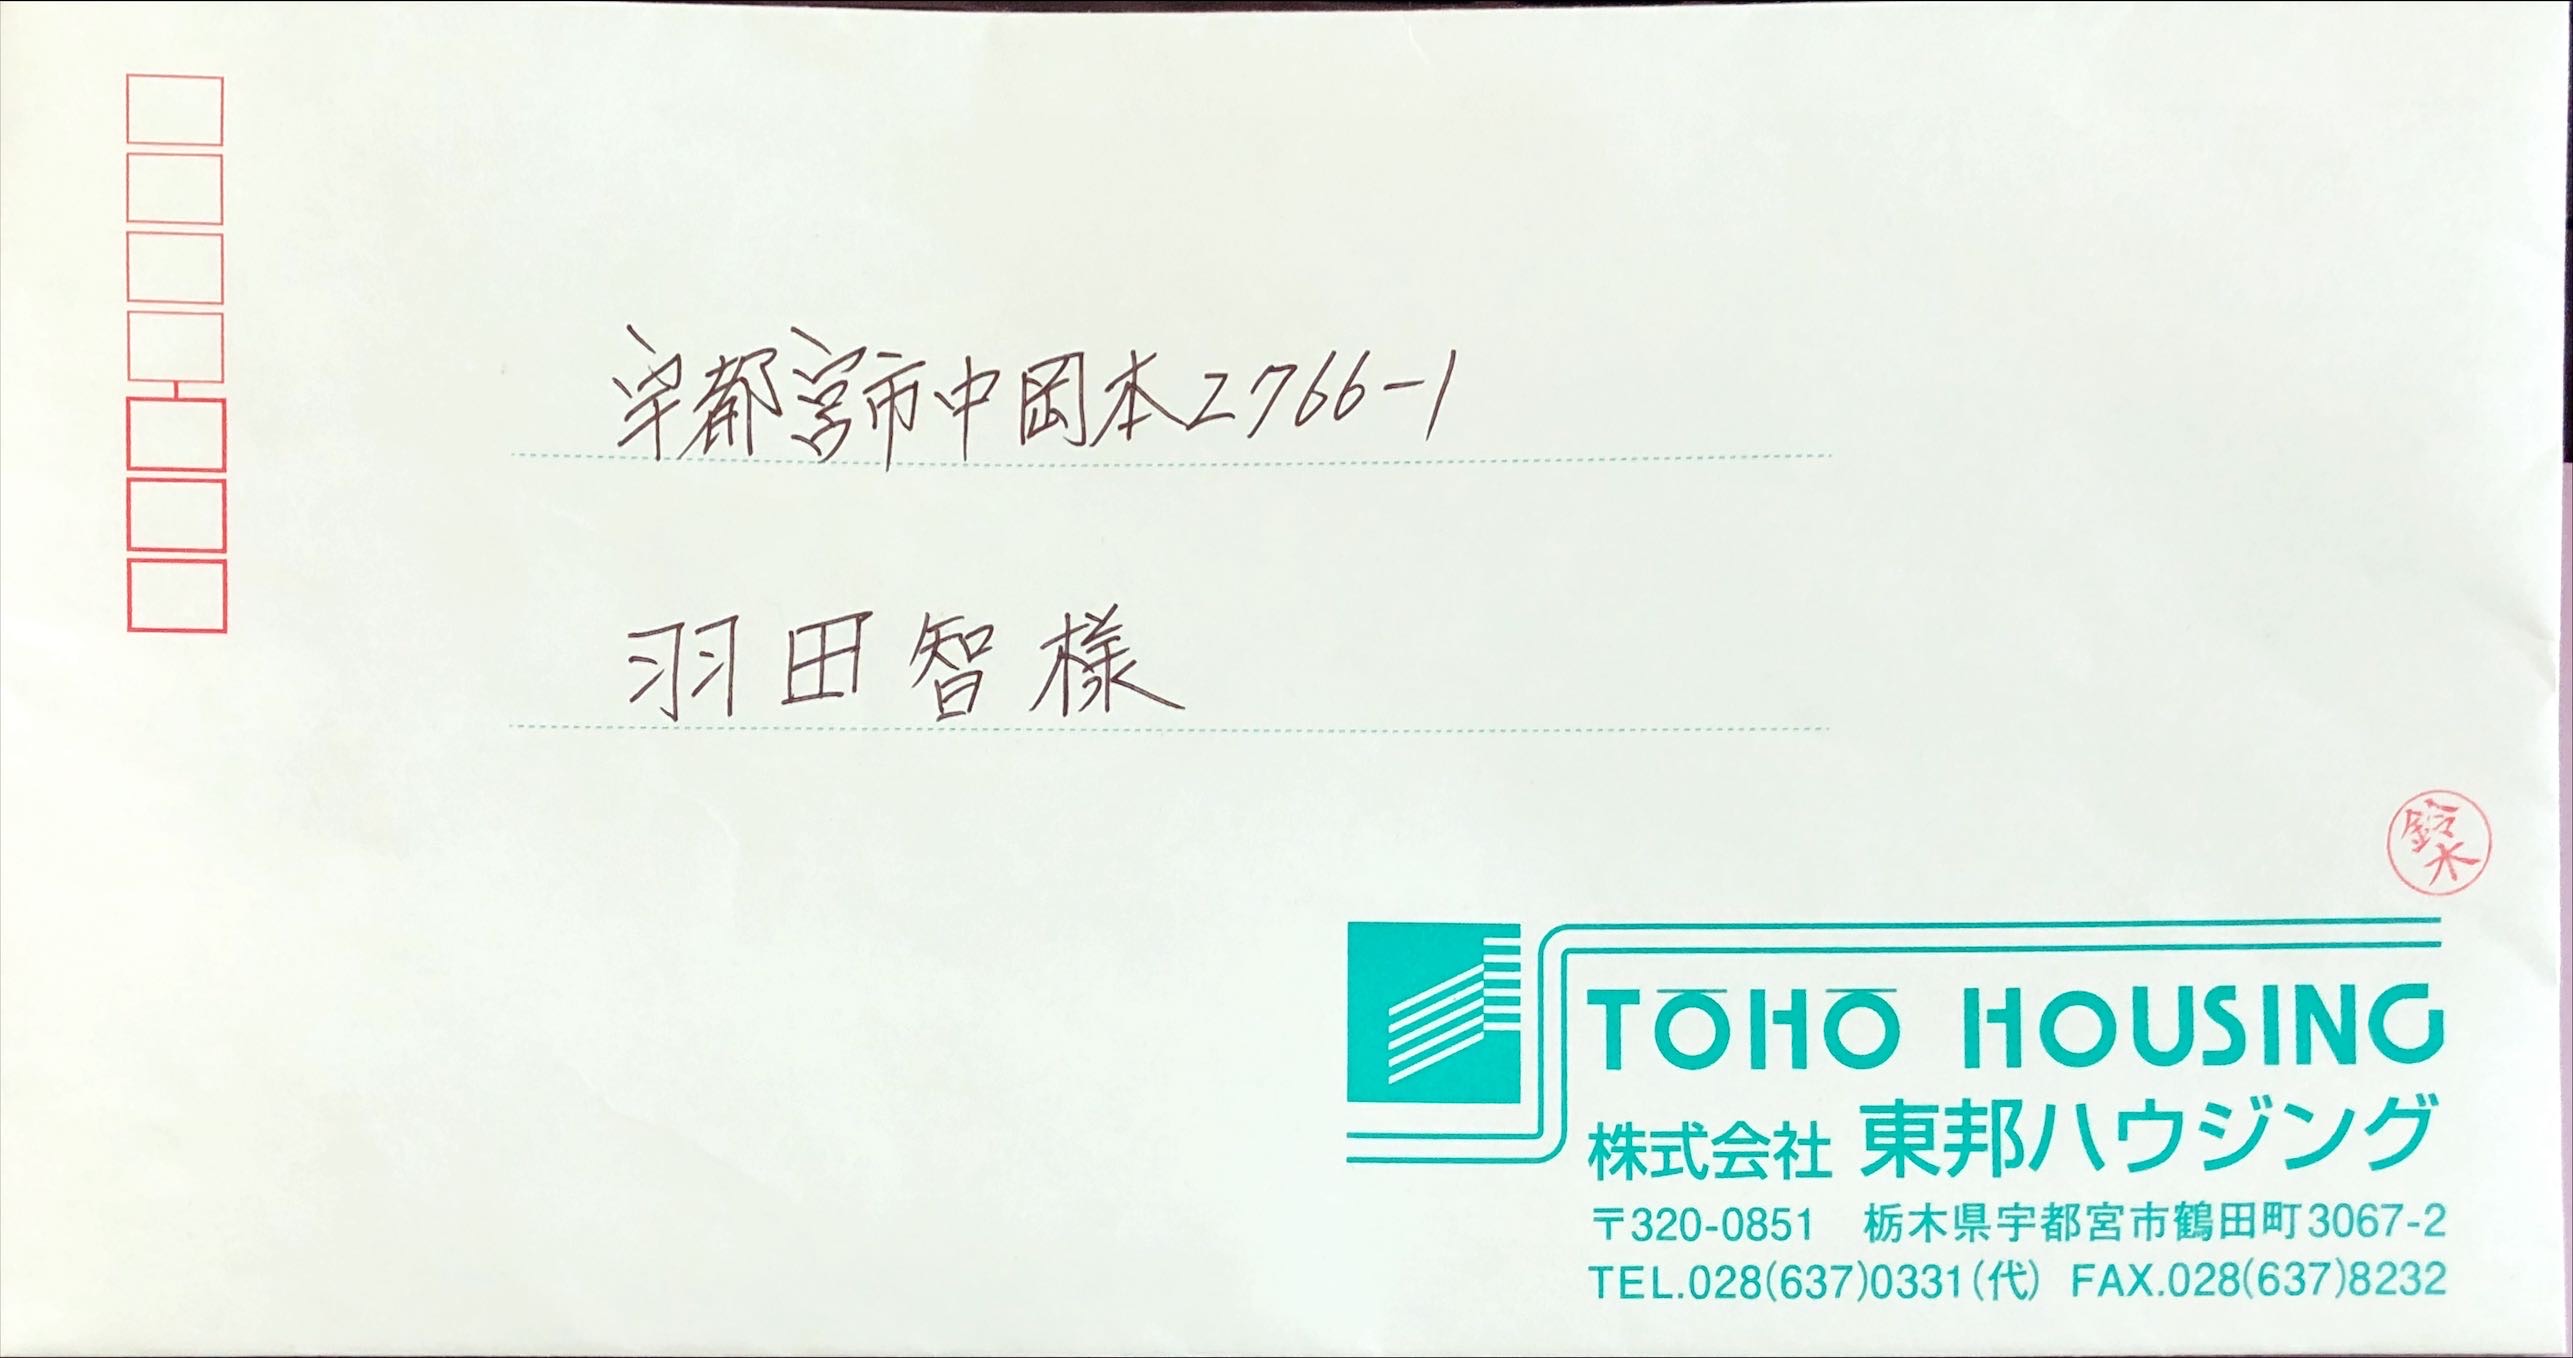 宇都宮市中岡本2766-1
羽田智様
鈴木
TŌHŌ HOUSING
株式会社 東邦ハウジング
〒320-0851 栃木県宇都宮市鶴田町3067-2
TEL.028(637)0331(代) FAX.028(637)8232